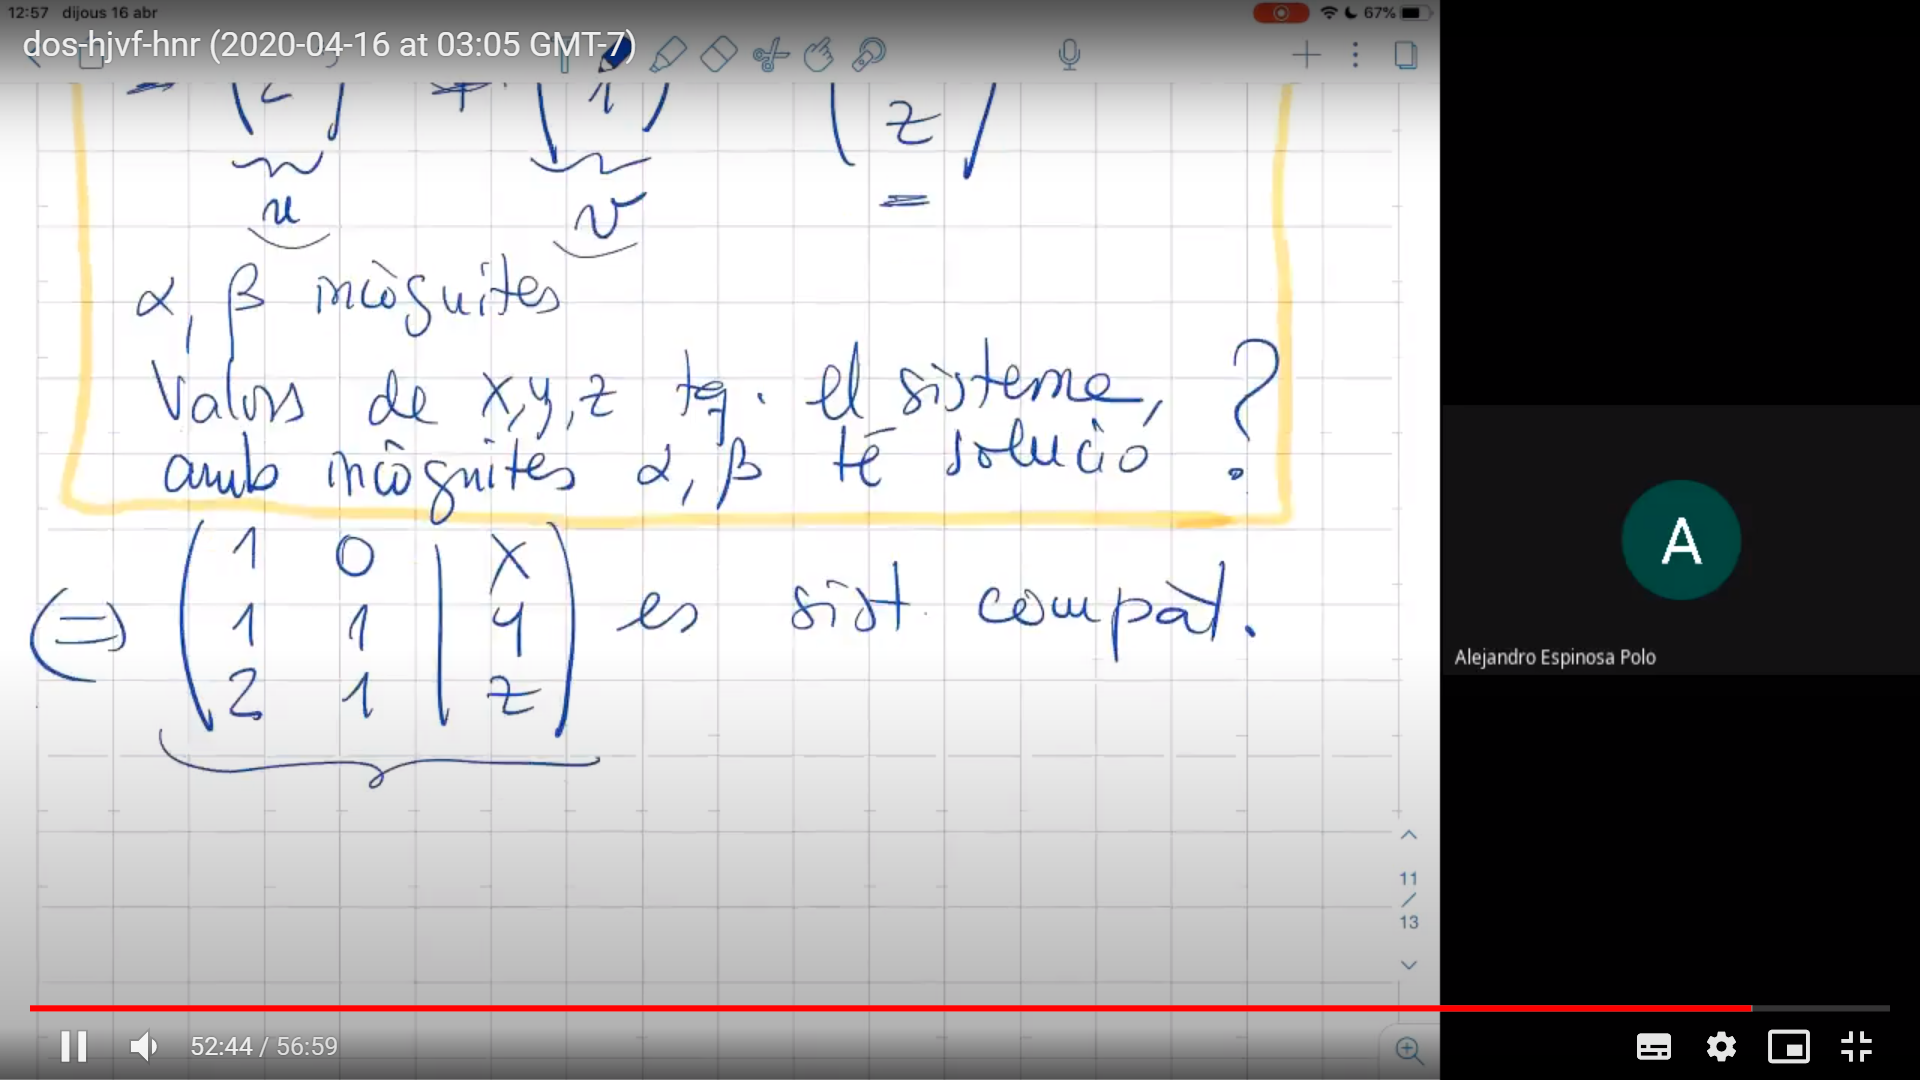 12:57 dijous 16 abr
67%
dos-hjvf-hnr (2020-04-16 at 03:05 GMT-7)
z
u v =
α, β incògnites
Valors de x,y,z tq. el sistema, ?
amb incògnites α, β té solució
1 0 | x
(=) 1 1 | y es sist. compat.
2 1 | z
A
Alejandro Espinosa Polo
11
/
13
52:44 / 56:59